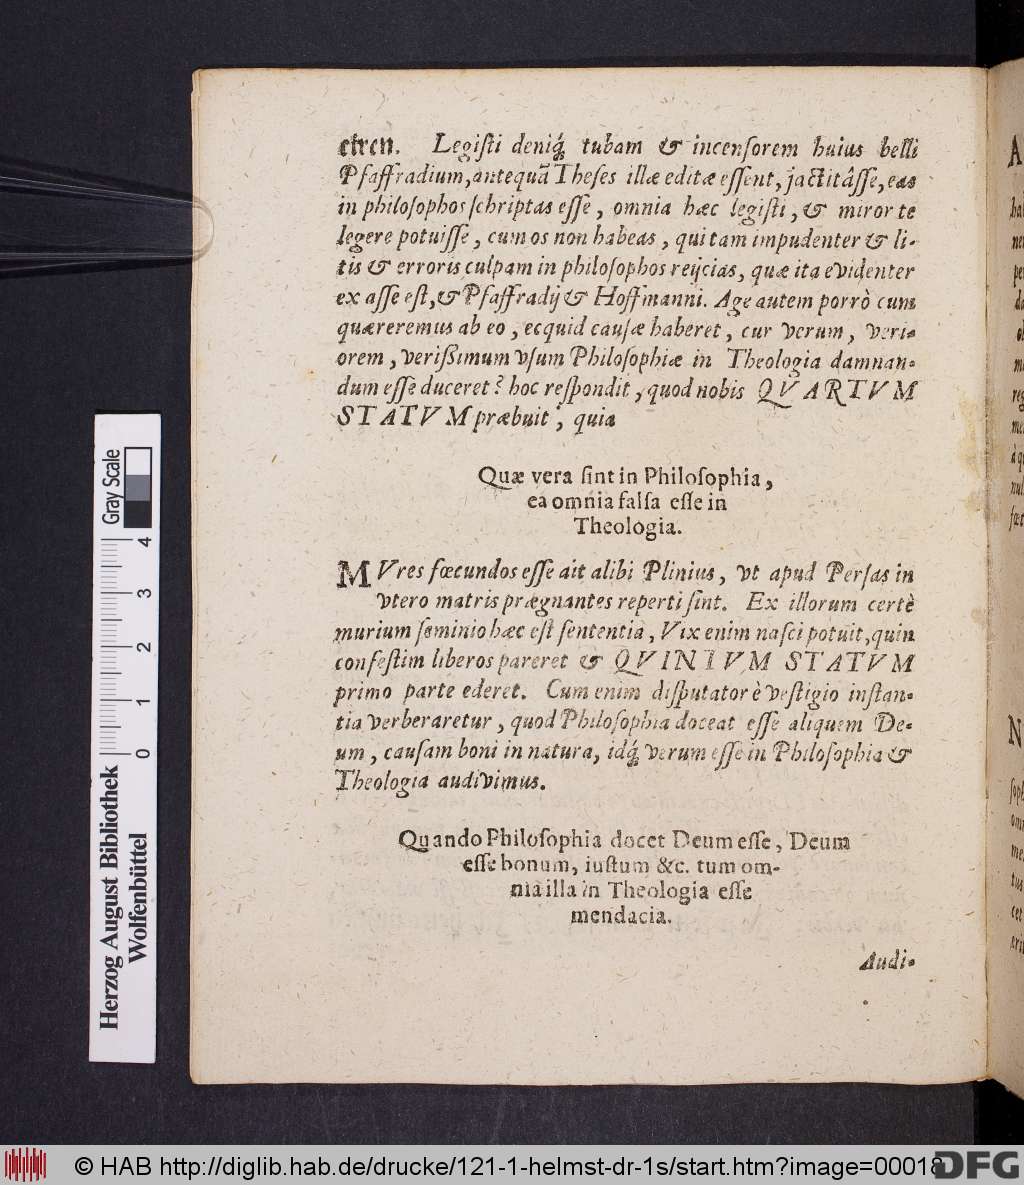 etren. Legiſti deniq́; tubam & incenſorem huius belli
Pfaffradium, antequã Theſes illæ editæ eſſent, jactitâſſe, eas
in philoſophos ſchriptas eſſe, omnia hæc legiſti, & miror te
legere potuiſſe, cum os non habeas, qui tam impudenter & li-
tis & erroris culpam in philoſophos reijcias, quæ ita evidenter
ex aſſe eſt, & Pfaffradij & Hoffmanni. Age autem porrò cum
quæreremus ab eo, ecquid cauſæ haberet, cur verum, veri-
orem, verißimum vſum Philoſophiæ in Theologia damnan-
dum eſſe duceret? hoc reſpondit, quod nobis QVARTVM
STATVM præbuit, quia
Quæ vera ſint in Philoſophia,
ea omnia falſa eſſe in
Theologia.
MVres fœcundos eſſe ait alibi Plinius, vt apud Perſas in
vtero matris prægnantes reperti ſint. Ex illorum certè
murium ſeminio hæc eſt ſententia, Vix enim naſci potuit, quin
confeſtim liberos pareret & QVINTVM STATVM
primo parte ederet. Cum enim diſputator è veſtigio inſtan-
tia verberaretur, quod Philoſophia doceat eſſe aliquem De-
um, cauſam boni in natura, idq́; verum eſſe in Philoſophia &
Theologia audivimus.
Quando Philoſophia docet Deum eſſe, Deum
eſſe bonum, iuſtum &c. tum om-
nia illa in Theologia eſſe
mendacia.
Audi-
Gray Scale
0 1 2 3 4
Herzog August Bibliothek
Wolfenbüttel
© HAB http://diglib.hab.de/drucke/121-1-helmst-dr-1s/start.htm?image=00018
DFG